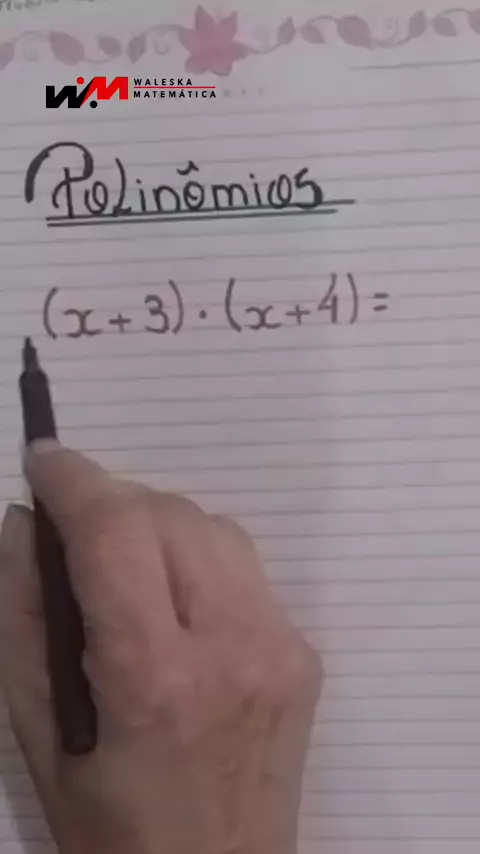 WM WALESKA
MATEMÁTICA
Polinômios
(x+3).(x+4)=